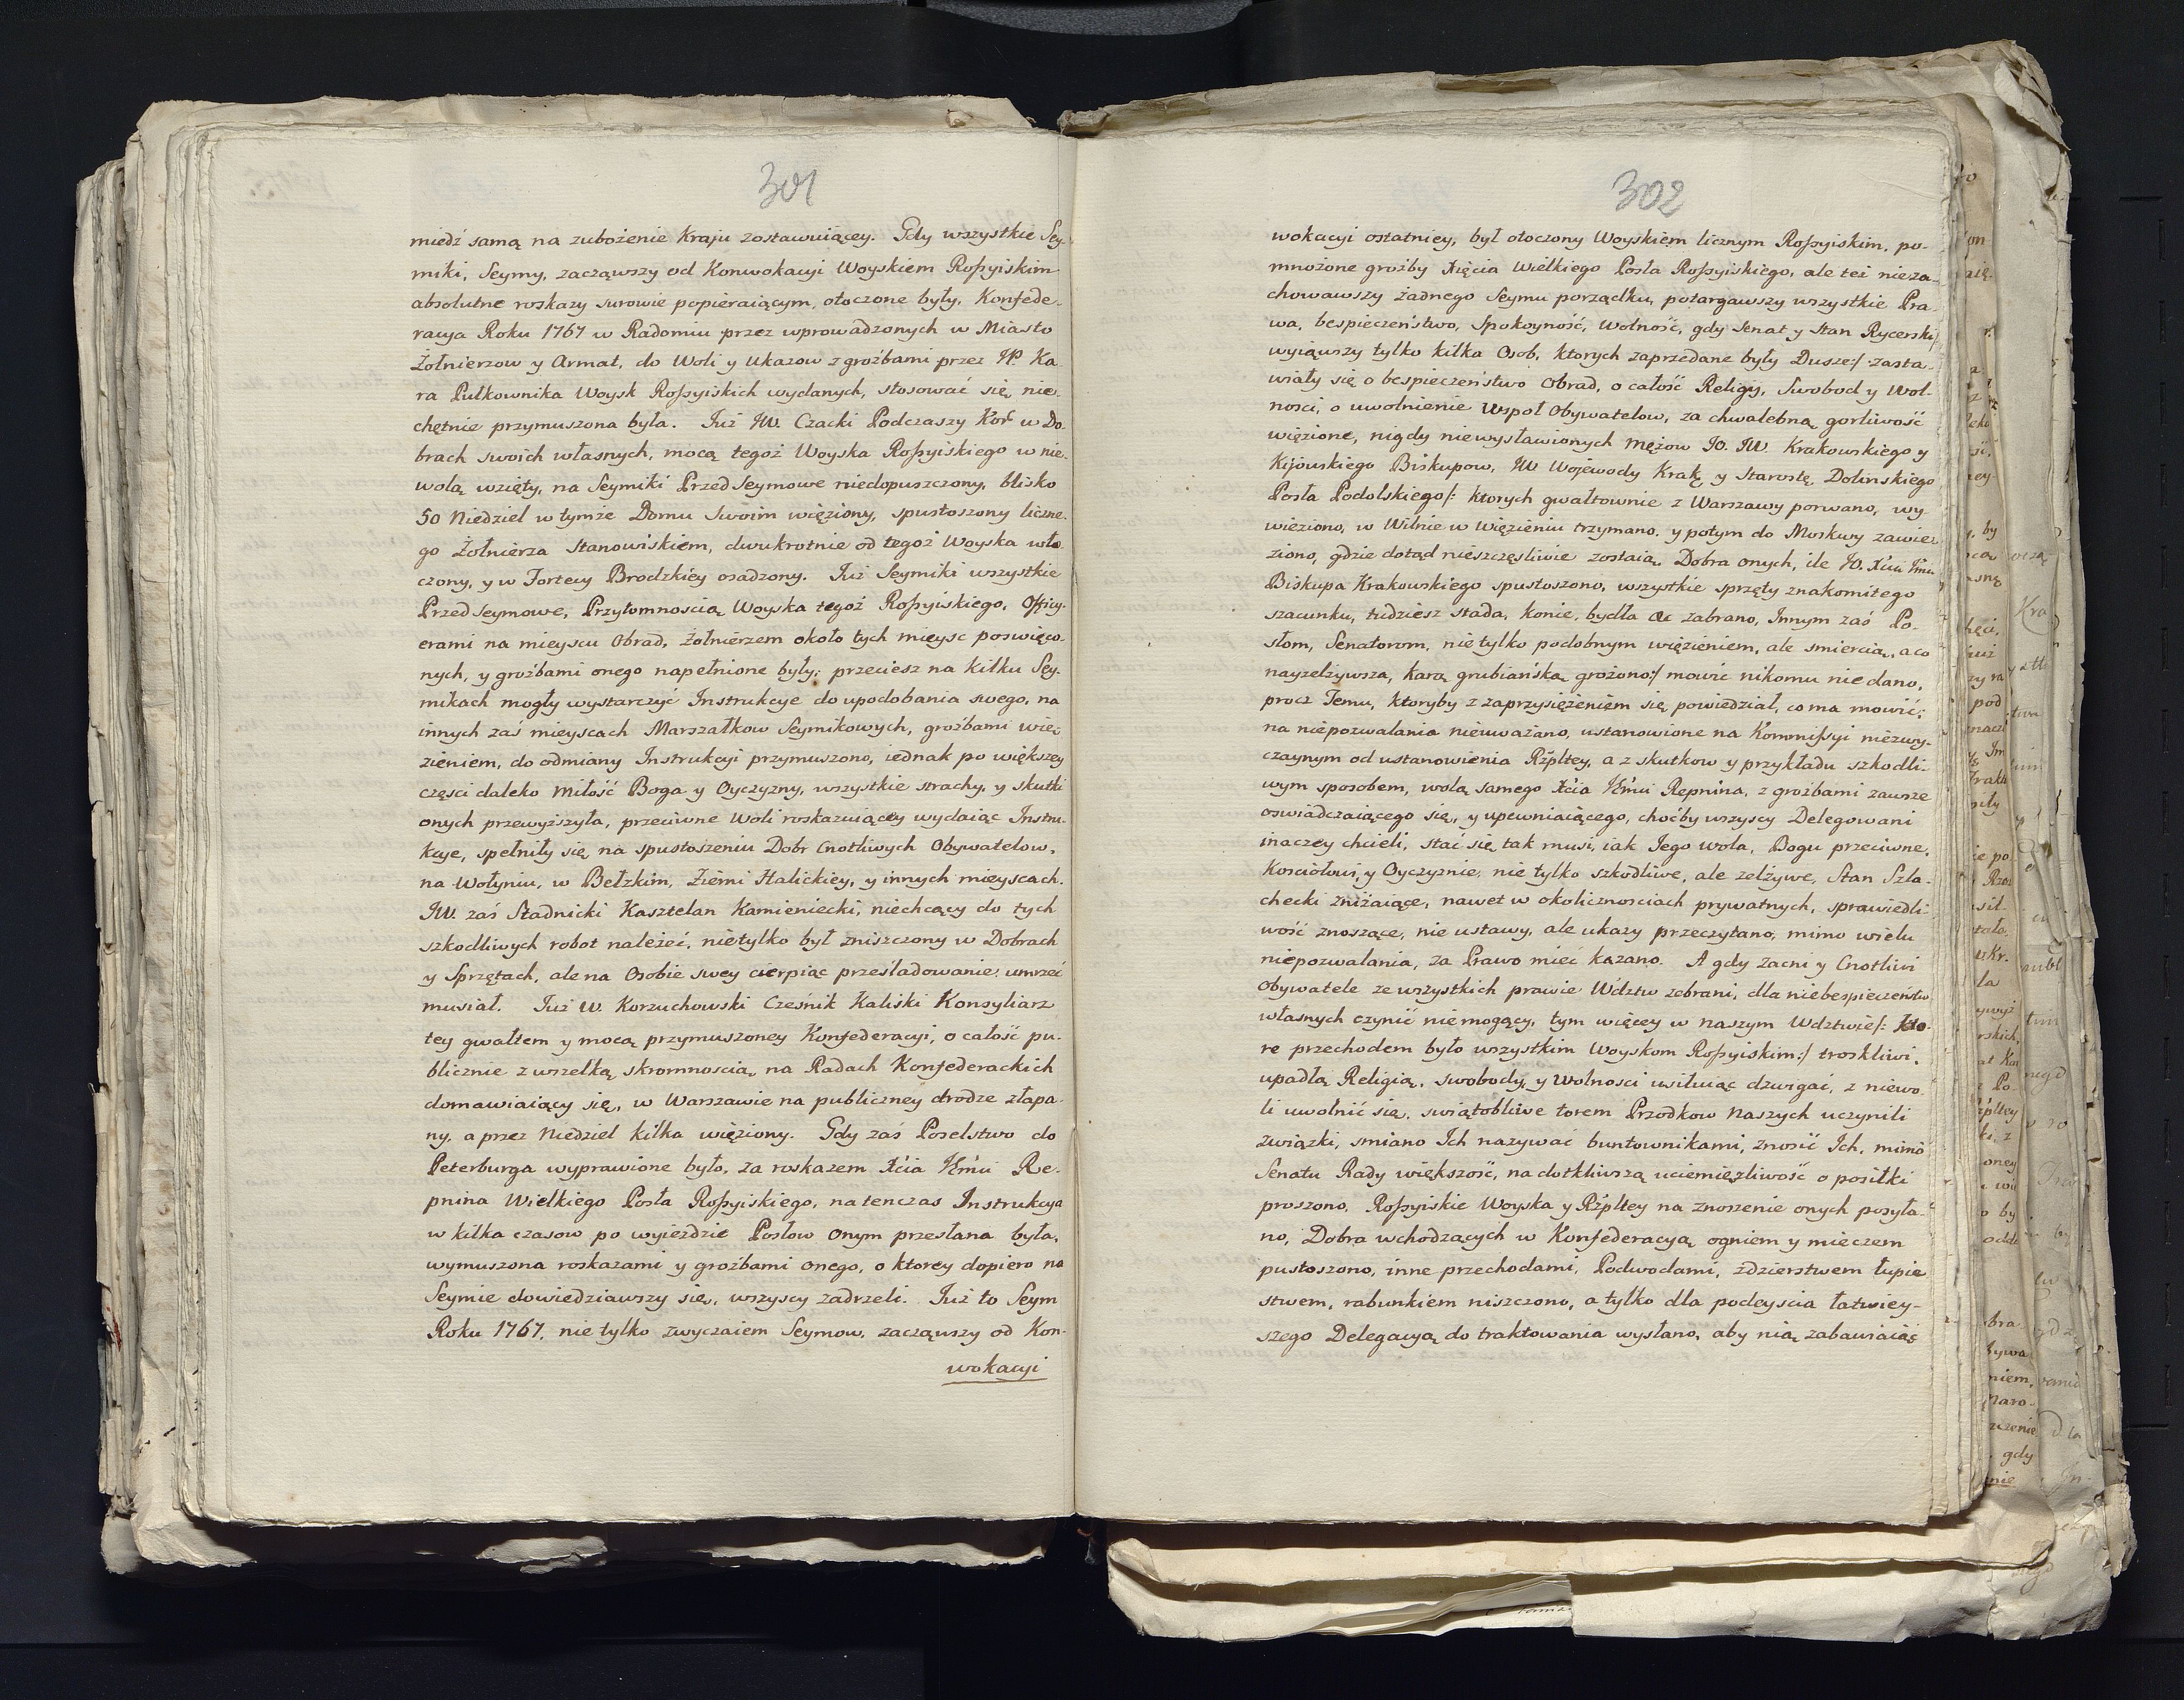 301
miedź samą na zubożenie Kraju zostawuiącey. Gdy wszystkie Sey-
miki, Seymy, zacząwszy od Konwokacyi Woyskiem Roſsyiskim
absolutne roskazy surowie popieraiącym, otoczone były, Konfede-
racya Roku 1767 w Radomiu przez wprowadzonych w Miasto
Żołnierzow y Armat, do Woli y Ukazow z groźbami przez JP. Ka
ra Pułkownika Woysk Roſsyiskich wydanych, stosować się, nie-
chętnie przymuszona była. Już JW. Czacki Podczaszy Kor w Do-
brach swoich własnych, mocą tegoż Woyska Roſsyiskiego w nie-
wolą wzięty, na Seymiki Przed Seymowe niedopuszczony, blisko
50 Niedziel w tymże Domu swoim więziony, spustoszony liczne-
go Żołnierza Stanowiskiem, dwukrotnie od tegoż Woyska włó-
czony, y w Fortecy Brodzkiey osadzony. Już Seymiki wszystkie
Przed Seymowe, Przytomnoscią Woyska tegoż Roſsyiskiego, Officy-
erami na mieyscu Obrad, żołnierzem około tych mieysc poswięco-
nych, y groźbami onego napełnione były; przeciesz na kilku Sey-
mikach mogły wystarczyć Instrukcye do upodobania swego, na
innych zaś mieyscach Marszałkow Seymikowych, groźbami wię-
zieniem, do odmiany Instrukcyi przymuszono, iednak po większey
częsci daleko miłość Boga y Oyczyzny, wszystkie strachy, y skutki
onych przewyższyła, przeciwne Woli roskazuiącey wydaiąc Instru-
kcye, spełniły się na spustoszeniu Dobr Cnotliwych Obywatelow,
na Wołyniu, w Bełzkim, Ziemi Halickiey, y innych mieyscach.
JW. zaś Stadnicki Kasztelan Kamieniecki, niechcący do tych
szkodliwych robot należeć, nietylko był zniszczony w Dobrach
y Sprzętach, ale na Osobie swey cierpiąc prześladowanie, umrzeć
musiał. Już W. Korzuchowski Cześnik Kaliski Konsyliarz
tey gwałtem y mocą przymuszoney Konfederacyi, o całość pu-
blicznie z wszelką skromnoscią, na Radach Konfederackich
domawiaiący się, w Warszawie na publiczney drodze złapa-
ny, a przez Niedziel kilka więziony. Gdy zaś Poselstwo do
Peterburga wyprawione było, za roskazem Xcia Jmci Re-
pnina Wielkiego Posła Roſsyiskiego, natenczas Instrukcya
w kilka czasow po wyieździe Posłow Onym przesłana była,
wymuszona roskazami y groźbami onego, o ktorey dopiero na
Seymie dowiedziawszy się, wszyscy zadrzeli. Już to Seym
Roku 1767. nie tylko zwyczaiem Seymow, zacząwszy od Kon-
wokacyi
302
wokacyi ostatniey, był otoczony Woyskiem licznym Roſsyiskim, po-
mnożone groźby Xięcia Wielkiego Posła Roſsyiskiego, ale też nieza-
chowawszy żadnego Seymu porządku, potargawszy wszystkie Pra-
wa, bespieczeństwo, Spokoyność, Wolność, gdy Senat y Stan Rycerski/:
wyiąwszy tylko kilka Osob, ktorych zaprzedane były Dusze:/ zasta-
wiały się o bespieczeństwo Obrad, o całość Religij, Swobod y Wol-
nosci, o uwolnienie Wspoł Obywatelow, za chwalebną gorliwość
więzione, nigdy niewysławionych Mężow JO. JW. Krakowskiego y
Kijowskiego Biskupow, JW Wojewody Krakę y Starostę Dolinskiego
Posła Podolskiego/: ktorych gwałtownie z Warszawy porwano, wy-
wieziono, w Wilnie w więzieniu trzymano, y potym do Moskwy zawie-
ziono, gdzie dotąd nieszczęśliwie zostaią. Dobra onych, ile JO. Xcia Jmci
Biskupa Krakowskiego spustoszono, wszystkie sprzęty znakomitego
szacunku, tudziesz stada, konie, bydła &c zabrano, Innym zaś Po-
słom, Senatorom, nie tylko podobnym więzieniem, ale smiercią, a co
nayzelżywsza, karą grubiańską grożono:/ mowić nikomu nie dano,
procz Temu, ktoryby z zaprzysiężeniem się powiedział, co ma mowić;
na niepozwalania nieuważano, ustanowione na Kommiſsyi niezwy-
czaynym od ustanowienia Rzpltey, a z skutkow y przykładu szkodli-
wym sposobem, wolą samego Xcia Jmci Repnina, z groźbami zawsze
oswiadczaiącego się, y upewniaiącego, choćby wszyscy Delegowani
inaczey chcieli, stać się tak musi, iak Jego wola, Bogu przeciwne,
Kosciołowi, y Oyczyznie, nie tylko szkodliwe, ale zelżywe, Stan Szla-
checki zniżaiące, nawet w okolicznosciach prywatnych, sprawiedli-
wość znoszące, nie ustawy, ale ukazy przeczytano, mimo wielu
niepozwalania, za Prawo mieć kazano. A gdy Zacni y Cnotliwi
Obywatele ze wszystkich prawie Wdztw zebrani, dla niebespieczeństw
własnych czynić niemogący, tym więcey w naszym Wdztwie/: kto-
re przechodem było wszystkim Woyskom Roſsyiskim:/ troskliwi,
upadłą Religią, swobody, y Wolnosci usiłuiąc dzwigać, z niewo-
li uwolnić się, swiątobliwe torem Przodkow naszych uczynili
związki, smiano Ich nazywać buntownikami, znosić Ich, mimo
Senatu Rady większość, na dotkliwszą uciemięzliwość o posiłki
proszono, Roſsyiskie Woyska y Rzpltey na znoszenie onych posyła-
no, Dobra wchodzących w Konfederacyą ogniem y mieczem
pustoszono, inne przechodami, Podwodami, zdzierstwem łupie-
stwem, rabunkiem niszczono, a tylko dla podeyscia łatwiey-
szego Delegacyą do traktowania wysłano, aby nią zabawiaiąc